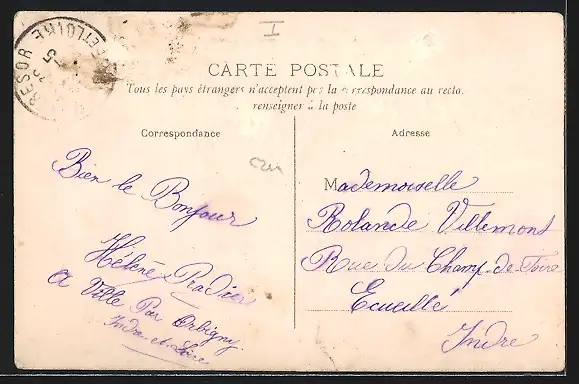 I
RESOR ET LOIRE
5
CARTE POSTALE
Tous les pays étrangers n'acceptent pas la correspondance au recto.
renseigner à la poste
Correspondance
Adresse
Bien le Bonjour
Hélène Pradier
à Ville Par Orbigny
Indre et Loire
Mademoiselle
Rolande Villemont
Rue du Champ de Foire
Ecueillé
Indre